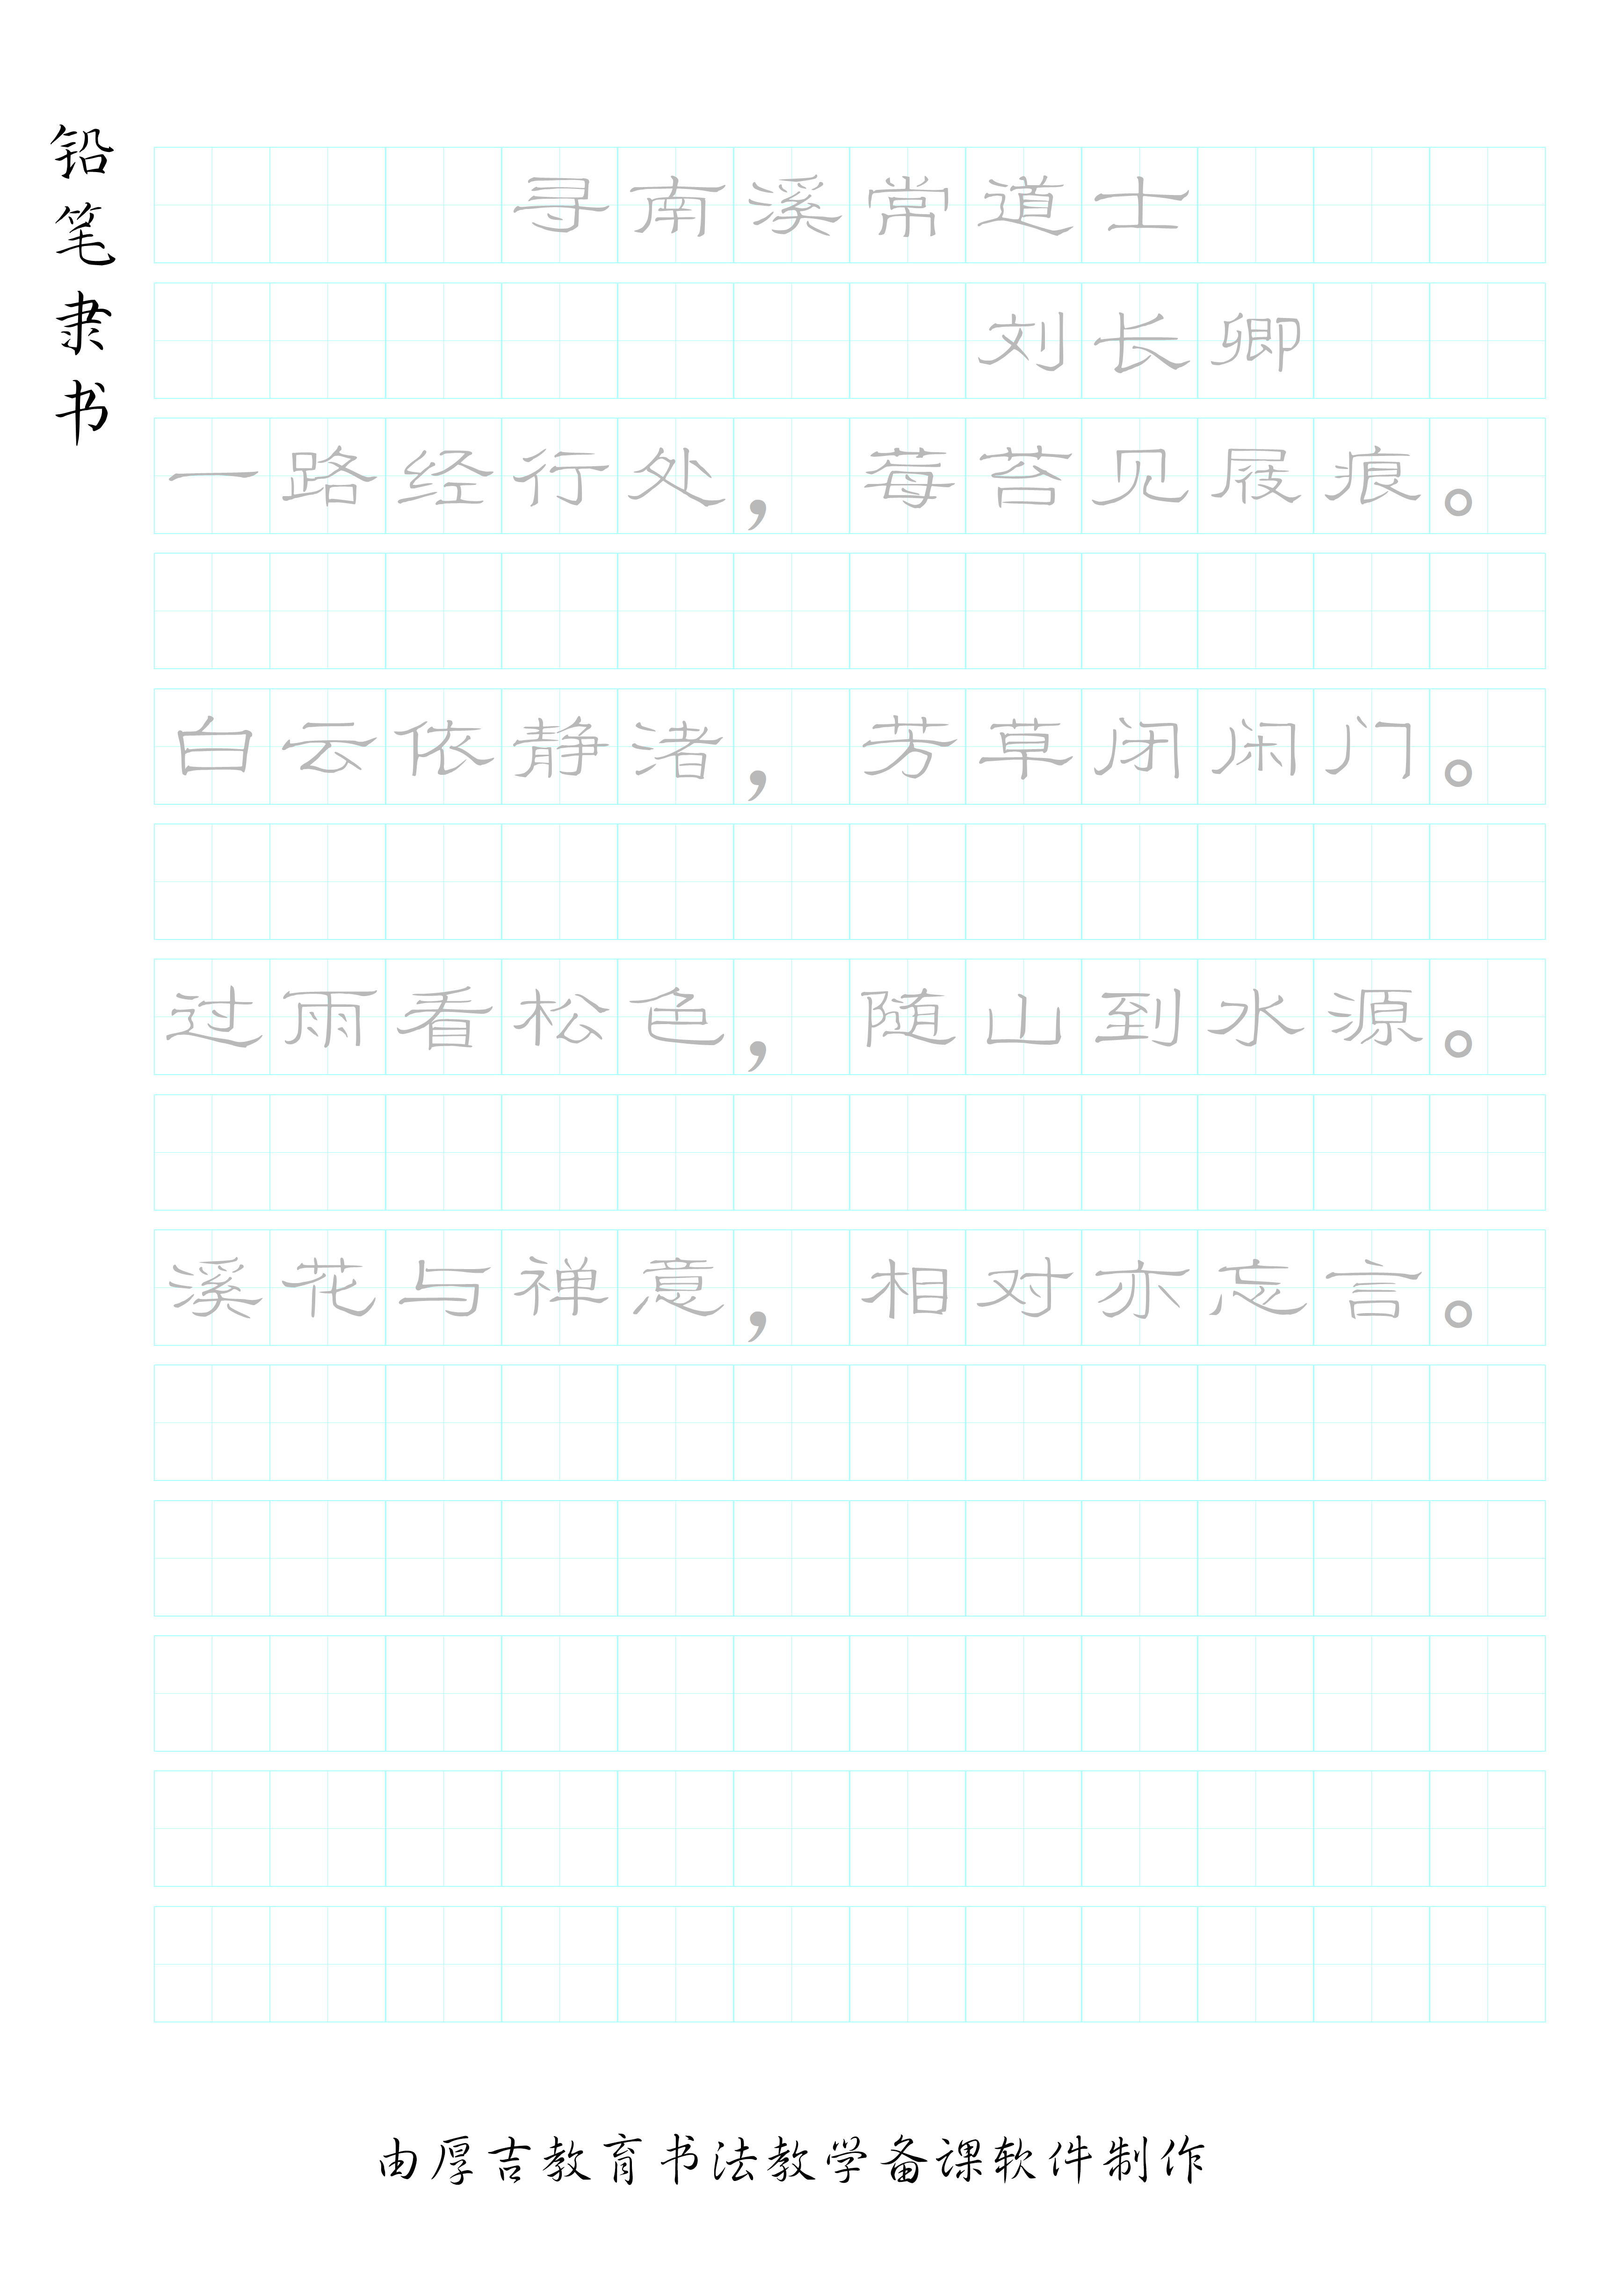 铅笔隶书
寻南溪常道士
刘长卿
一路经行处，莓苔见屐痕。
白云依静渚，芳草闭闲门。
过雨看松色，随山到水源。
溪花与禅意，相对亦忘言。
由厚吉教育书法教学备课软件制作